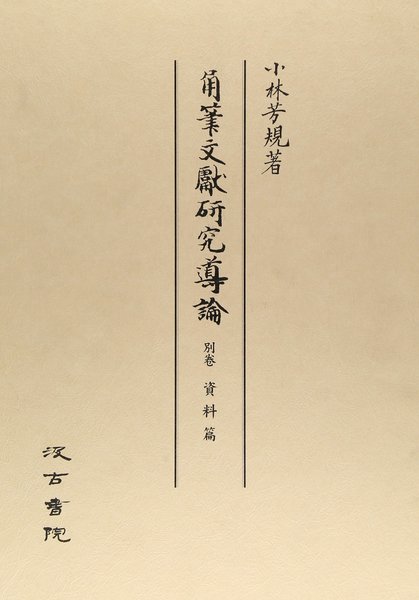 小林芳規著
角筆文獻研究導論
別卷 資料篇
汲古書院